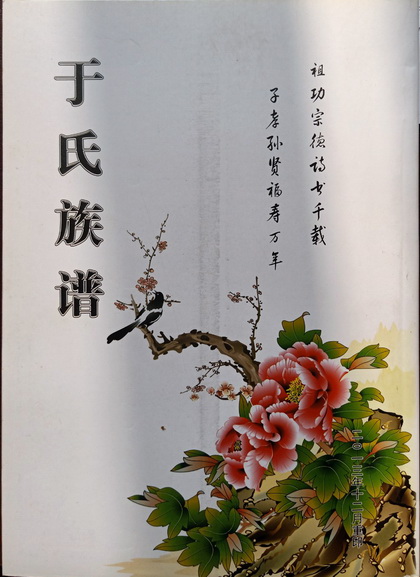 于氏族谱
祖功宗德诗书千载
子孝孙贤福寿万年
二〇一三年十二月重印